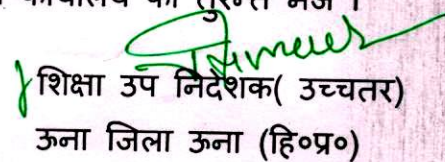 कार्यालय को तुरन्त भेजें ।
शिक्षा उप निदेशक( उच्चतर)
ऊना जिला ऊना (हि०प्र०)